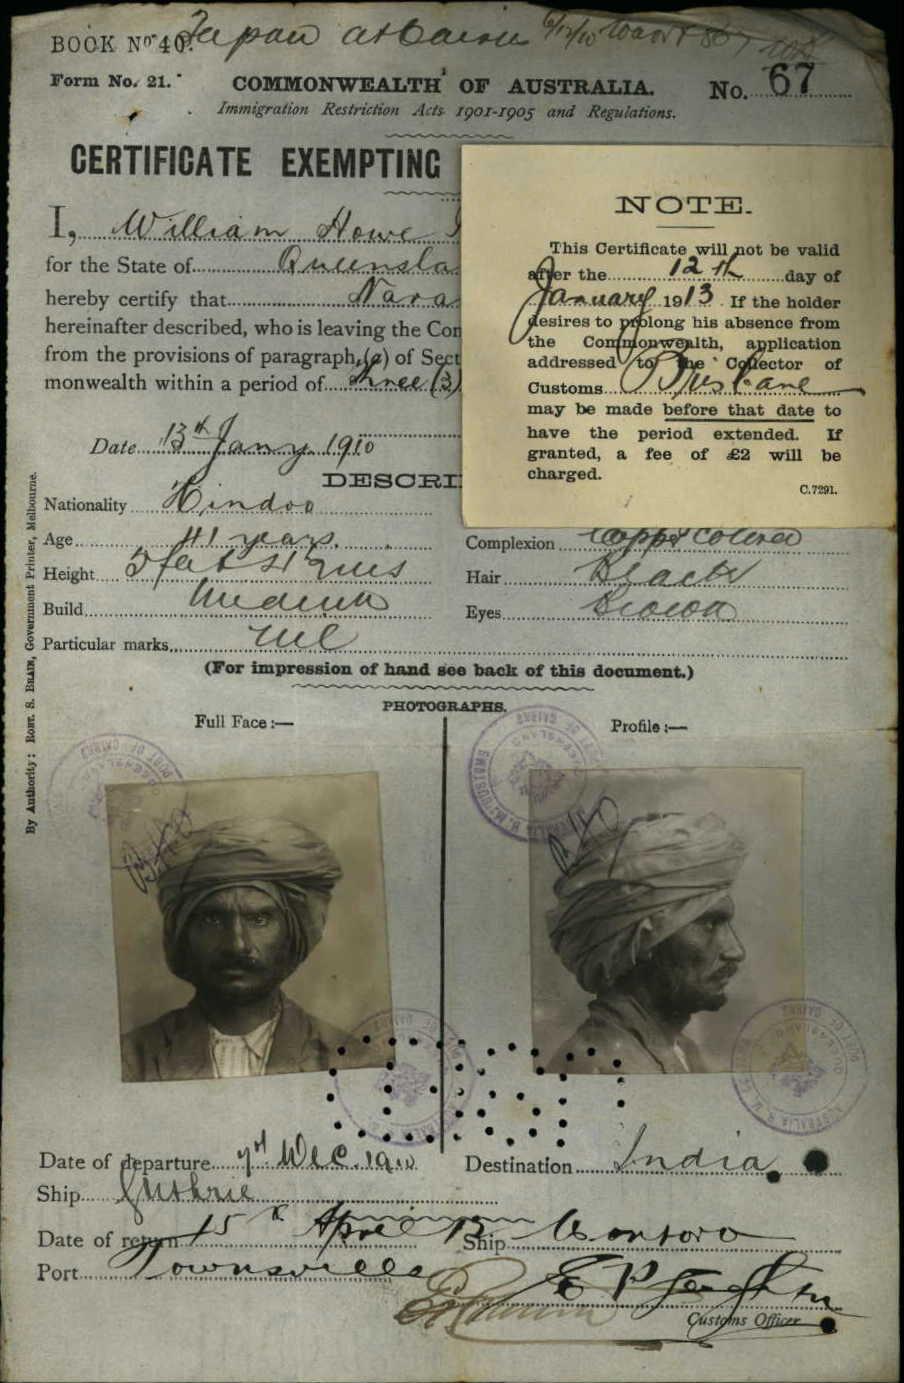 BOOK No. 40.
Japan at Cairns 6/12/10
Form No. 21.
COMMONWEALTH OF AUSTRALIA.
No. 67
Immigration Restriction Acts 1901-1905 and Regulations.
CERTIFICATE EXEMPTING
I, William Howe
for the State of Queensla
hereby certify that Nara
hereinafter described, who is leaving the Con
from the provisions of paragraph (a) of Sect
monwealth within a period of three (3)
Date 13th Jany. 1910
NOTE.
This Certificate will not be valid
after the 12th day of
January 1913. If the holder
desires to prolong his absence from
the Commonwealth, application
addressed to the Collector of
Customs Brisbane
may be made before that date to
have the period extended. If
granted, a fee of £2 will be
charged.
C.7291.
DESCRI
Nationality Hindoo
Age 41 years.
Complexion Copper Colored
Height 5 feet 5 1/2 ins
Hair Black
Build Medium
Eyes Brown
Particular marks Nil
(For impression of hand see back of this document.)
By Authority: ROBT. S. BRAIN, Government Printer, Melbourne.
PHOTOGRAPHS.
Full Face:—
Profile:—
Date of departure 7th Dec. 1910
Destination India
Ship Guthrie
Date of return 15th April 13
Ship
Port Townsville
Customs Officer